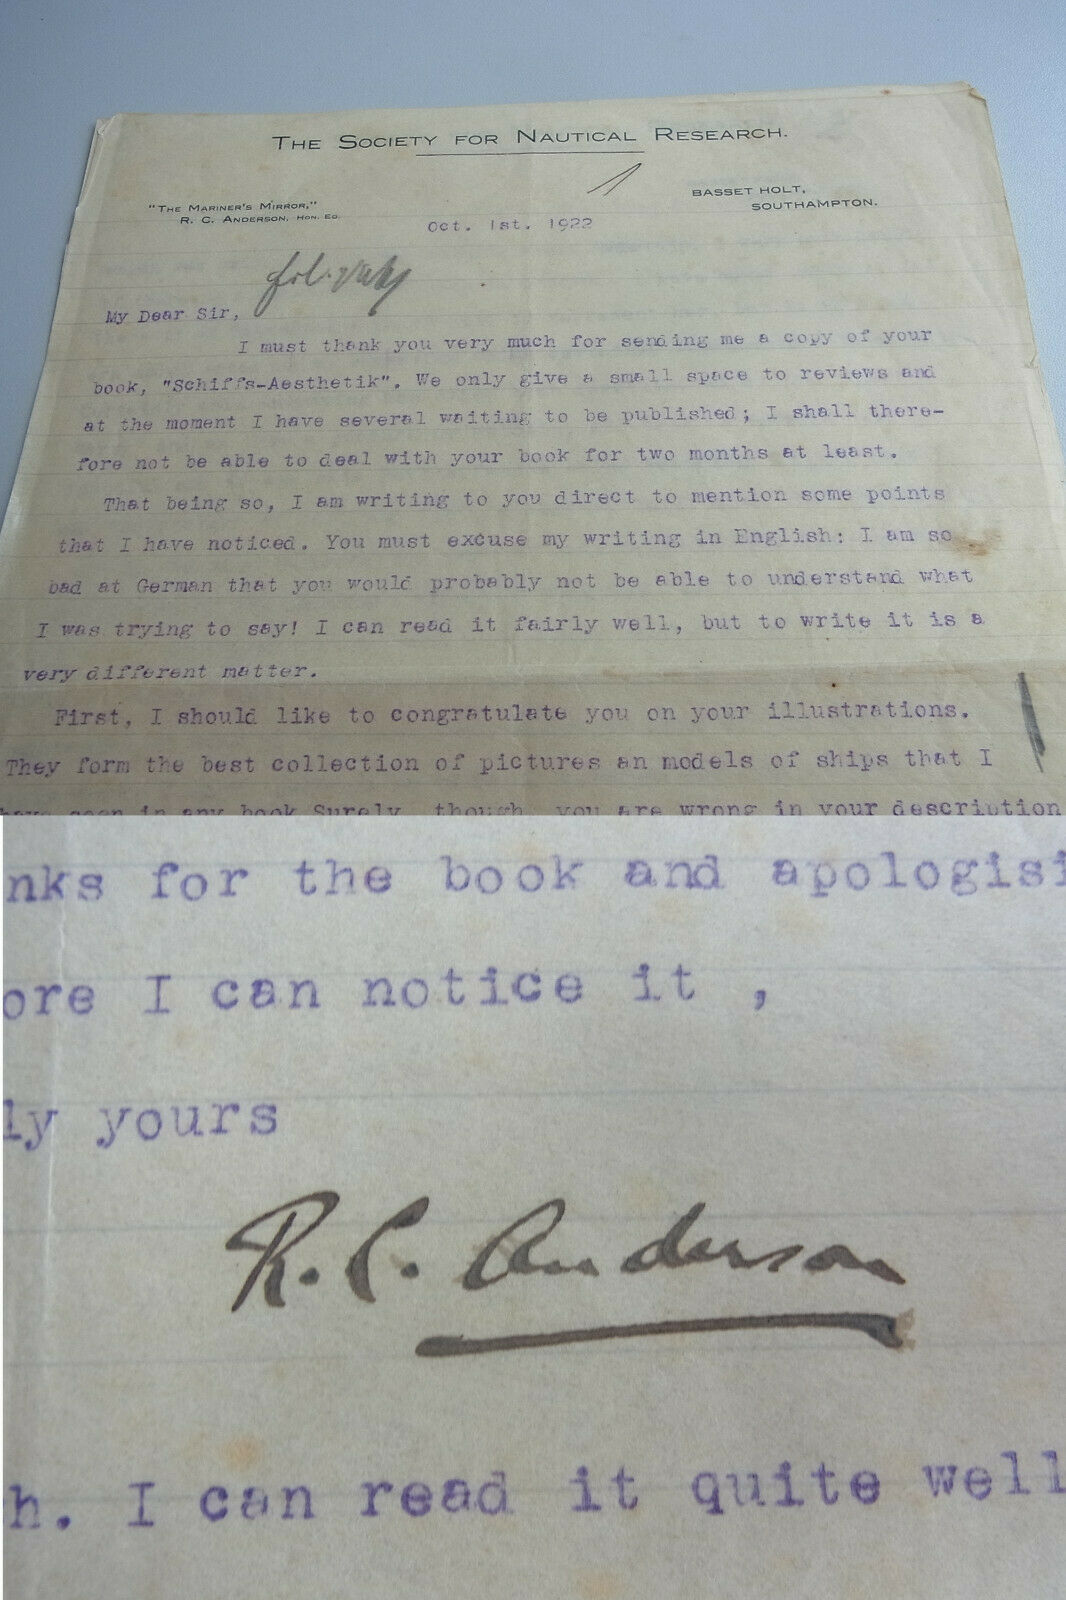 The Society for Nautical Research.
"The Mariner's Mirror,"
R. C. Anderson, Hon. Ed.
Basset Holt,
Southampton.
Oct. 1st. 1922
My Dear Sir,
I must thank you very much for sending me a copy of your
book, "Schiffs-Aesthetik". We only give a small space to reviews and
at the moment I have several waiting to be published; I shall there-
fore not be able to deal with your book for two months at least.
That being so, I am writing to you direct to mention some points
that I have noticed. You must excuse my writing in English: I am so
bad at German that you would probably not be able to understand what
I was trying to say! I can read it fairly well, but to write it is a
very different matter.
First, I should like to congratulate you on your illustrations.
They form the best collection of pictures an models of ships that I
have seen in any book Surely, though, you are wrong in your description
nks for the book and apologisi
ore I can notice it ,
ly yours
R. C. Anderson
h. I can read it quite well